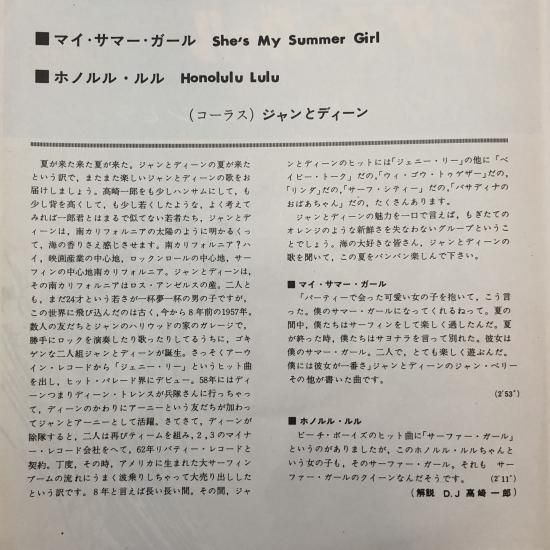 ■ マイ・サマー・ガール She's My Summer Girl
■ ホノルル・ルル Honolulu Lulu
(コーラス) ジャンとディーン
夏が来た来た夏が来た。ジャンとディーンの夏が来た
という訳で、またまた楽しいジャンとディーンの歌をお
届けしましょう。高崎一郎をも少しハンサムにして、も
少し背を高くして、も少し若くしたような、よく考えて
みれば一郎君とはまるで似てない若者たち、ジャンとデ
ィーンは、南カリフォルニアの太陽のように明かるくっ
て、海の香りさえ感じさせます。南カリフォルニア?ハ
イ、映画産業の中心地、ロックンロールの中心地、サー
フィンの中心地南カリフォルニア。ジャンとディーンは、
その南カリフォルニアはロス・アンゼルスの産。二人と
も、まだ24才という若さが一杯夢一杯の男の子ですが、
この世界に飛び込んだのは古く、今から8年前の1957年。
数人の友だちとジャンのハリウッドの家のガレージで、
勝手にロックを演奏したり歌ったりしてるうちに、ゴキ
ゲンな二人組ジャンとディーンが誕生。さっそくアーウ
イン・レコードから「ジェニー・リー」というヒット曲
を出し、ヒット・パレード界にデビュー。58年にはディ
ーンつまりディーン・トレンスが兵隊さんに行っちゃっ
て、ディーンのかわりにアーニーという友だちが加わっ
てジャンとアーニーとして活躍。さてさて、ディーンが
除隊すると、二人は再びティームを組み、2,3のマイナ
ー・レコード会社をへて、62年リバティー・レコードと
契約。丁度、その時、アメリカに生まれた大サーフィン
ブームの流れにうまく波乗りしちゃって大売り出しした
という訳です。8年と言えば長い長い間。その間、ジャ
ンとディーンのヒットには「ジェニー・リー」の他に「ベ
イビー・トーク」だの,「ウィ・ゴウ・トゥゲザー」だの,
「リンダ」だの,「サーフ・シティー」だの,「パサディナの
おばあちゃん」だの, たくさんあります。
ジャンとディーンの魅力を一口で言えば、もぎたての
オレンジのような新鮮さを失なわないグループというこ
とでしょう。海の大好きな皆さん、ジャンとディーンの
歌を聞いて、この夏をバンバン楽しんで下さい。
■ マイ・サマー・ガール
「パーティーで会った可愛い女の子を抱いて、こう言
った。僕のサマー・ガールになってくれるねって。夏の
間中、僕たちはサーフィンをして楽しく過したんだ。夏
が終った時、僕たちはサヨナラを言って別れた。彼女は
僕のサマー・ガール。二人で、とても楽しく遊ぶんだ。
僕には彼女が一番さ」ジャンとディーンのジャン・ベリー
その他が書いた曲です。
(2'53")
■ ホノルル・ルル
ビーチ・ボーイズのヒット曲に「サーファー・ガール」
というのがありましたが、このホノルル・ルルちゃんと
いう女の子も、そのサーファー・ガール。それも サー
ファー・ガールのクイーンなんだそうです。 (2'11")
(解説 D.J 高崎一郎)